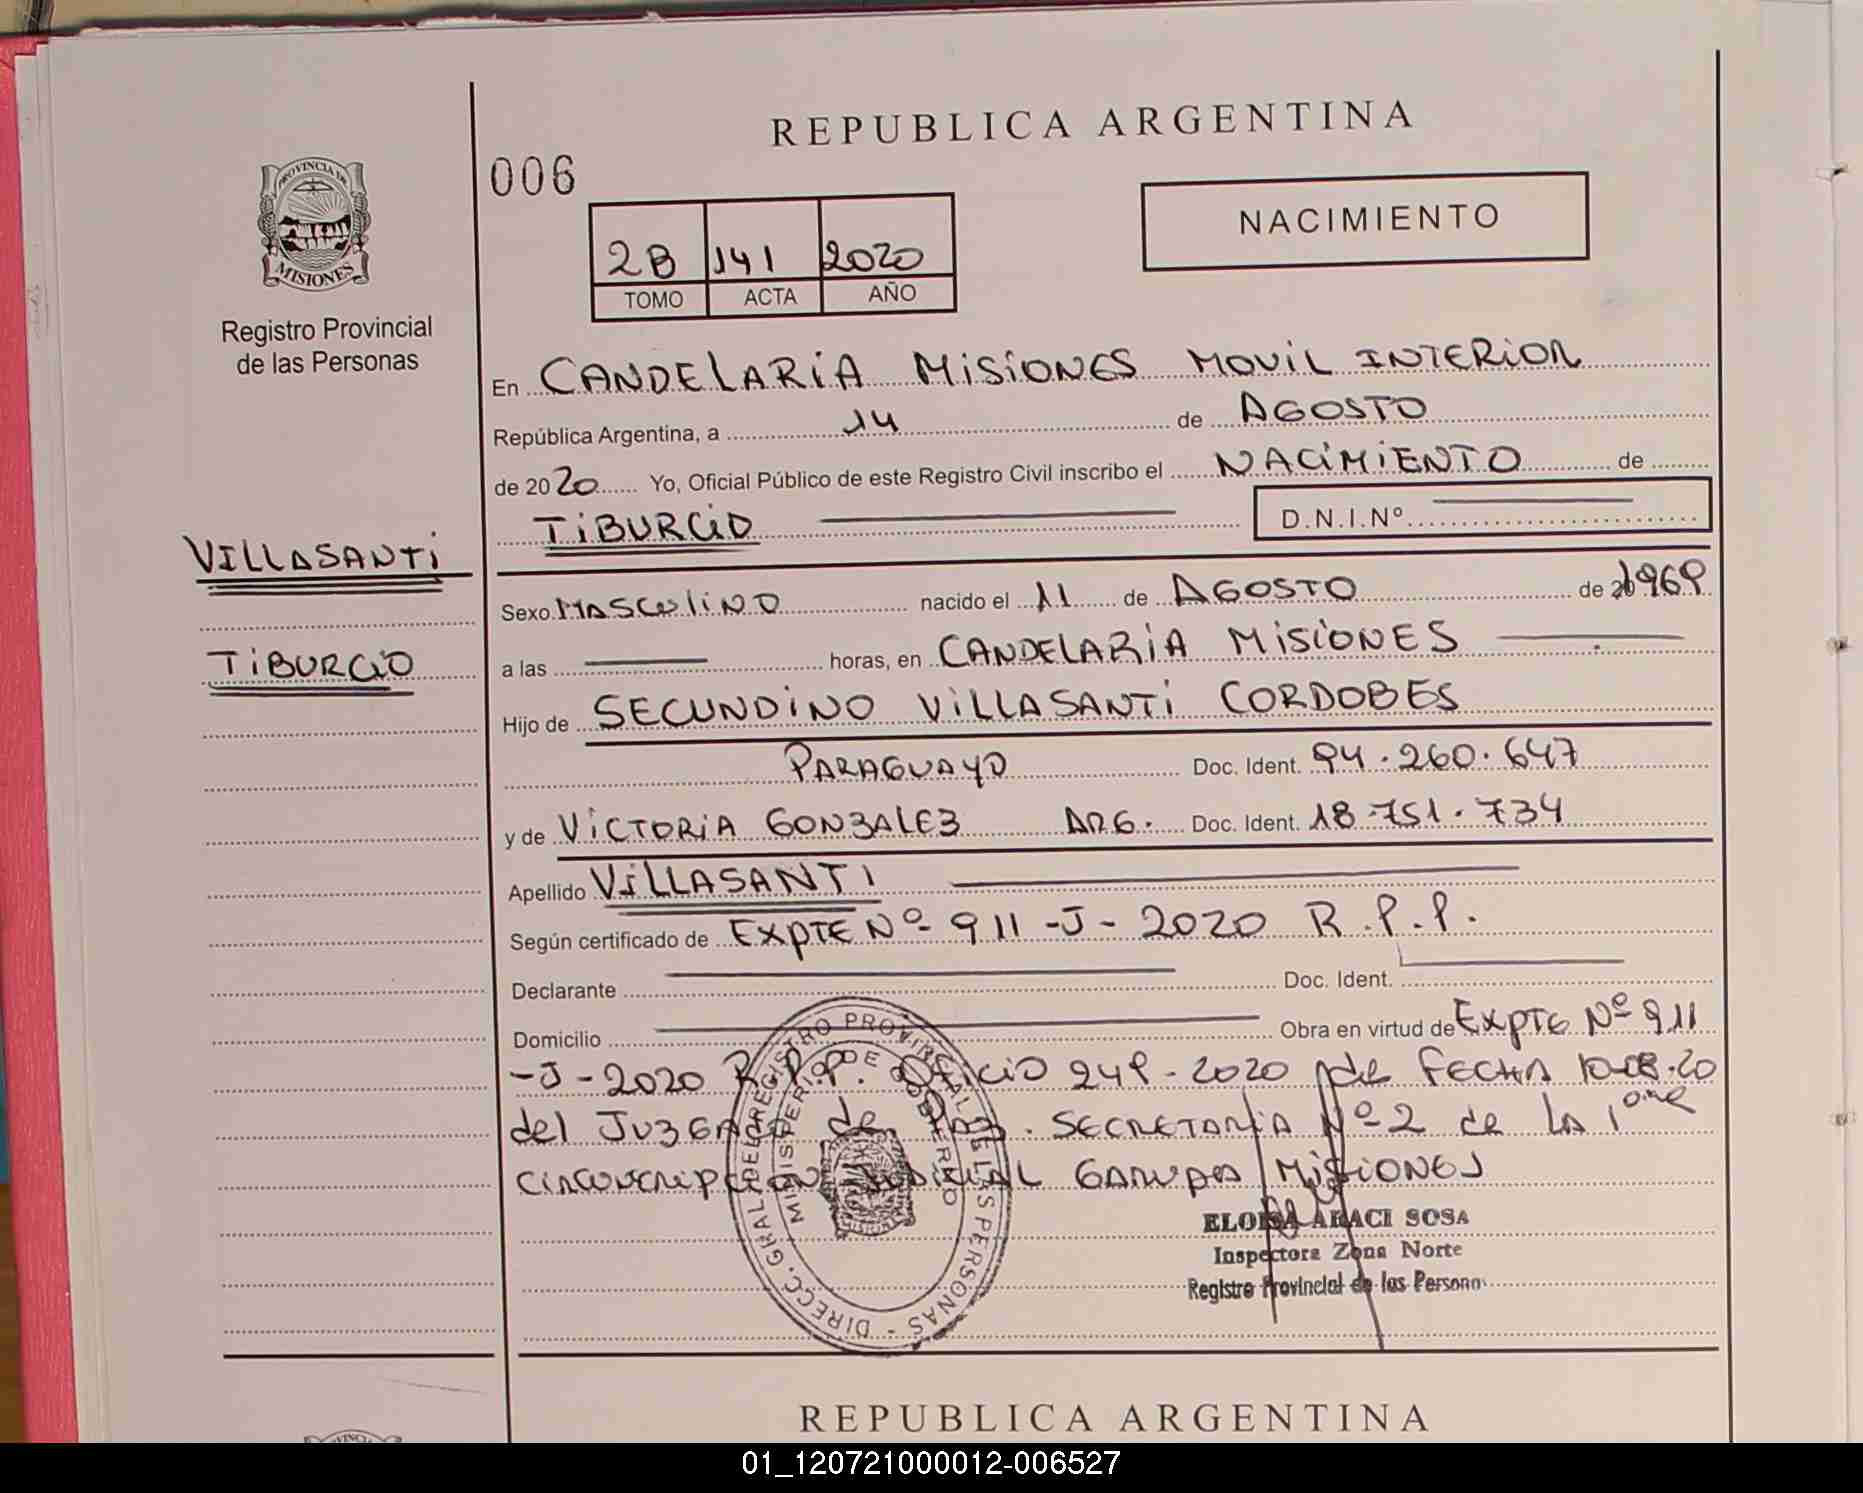 REPUBLICA ARGENTINA
006
NACIMIENTO
PROVINCIA DE
MISIONES
2B 141 2020
TOMO ACTA AÑO
Registro Provincial
de las Personas
En CANDELARIA MISIONES MOVIL INTERIOR
República Argentina, a 14 de AGOSTO
de 2020 Yo, Oficial Público de este Registro Civil inscribo el NACIMIENTO de
TIBURCIO D.N.I.Nº
VILLASANTI
Sexo MASCULINO nacido el 11 de AGOSTO de 1969
TIBURCIO
a las horas, en CANDELARIA MISIONES
Hijo de SECUNDINO VILLASANTI CORDOBES
PARAGUAYO Doc. Ident. 94.260.647
y de VICTORIA GONZALEZ ARG. Doc. Ident. 18.751.734
Apellido VILLASANTI
Según certificado de EXPTE Nº 911-J-2020 R.P.P.
Declarante Doc. Ident.
Domicilio Obra en virtud de EXPTE Nº 911
-J-2020 R.P.P. OFICIO 249-2020 de FECHA 10-08-20
del JUZGADO de PAZ. SECRETARIA Nº 2 de LA 1
CIRCUNSCRIPCION JUDICIAL GARUPA MISIONES
DIRECC. GRAL DEL REGISTRO PROVINCIAL DE LAS PERSONAS -
MINISTERIO DE GOBIERNO
ELOISA ARACI SOSA
Inspectora Zona Norte
Registro Provincial de las Persona
REPUBLICA ARGENTINA
01_120721000012-006527